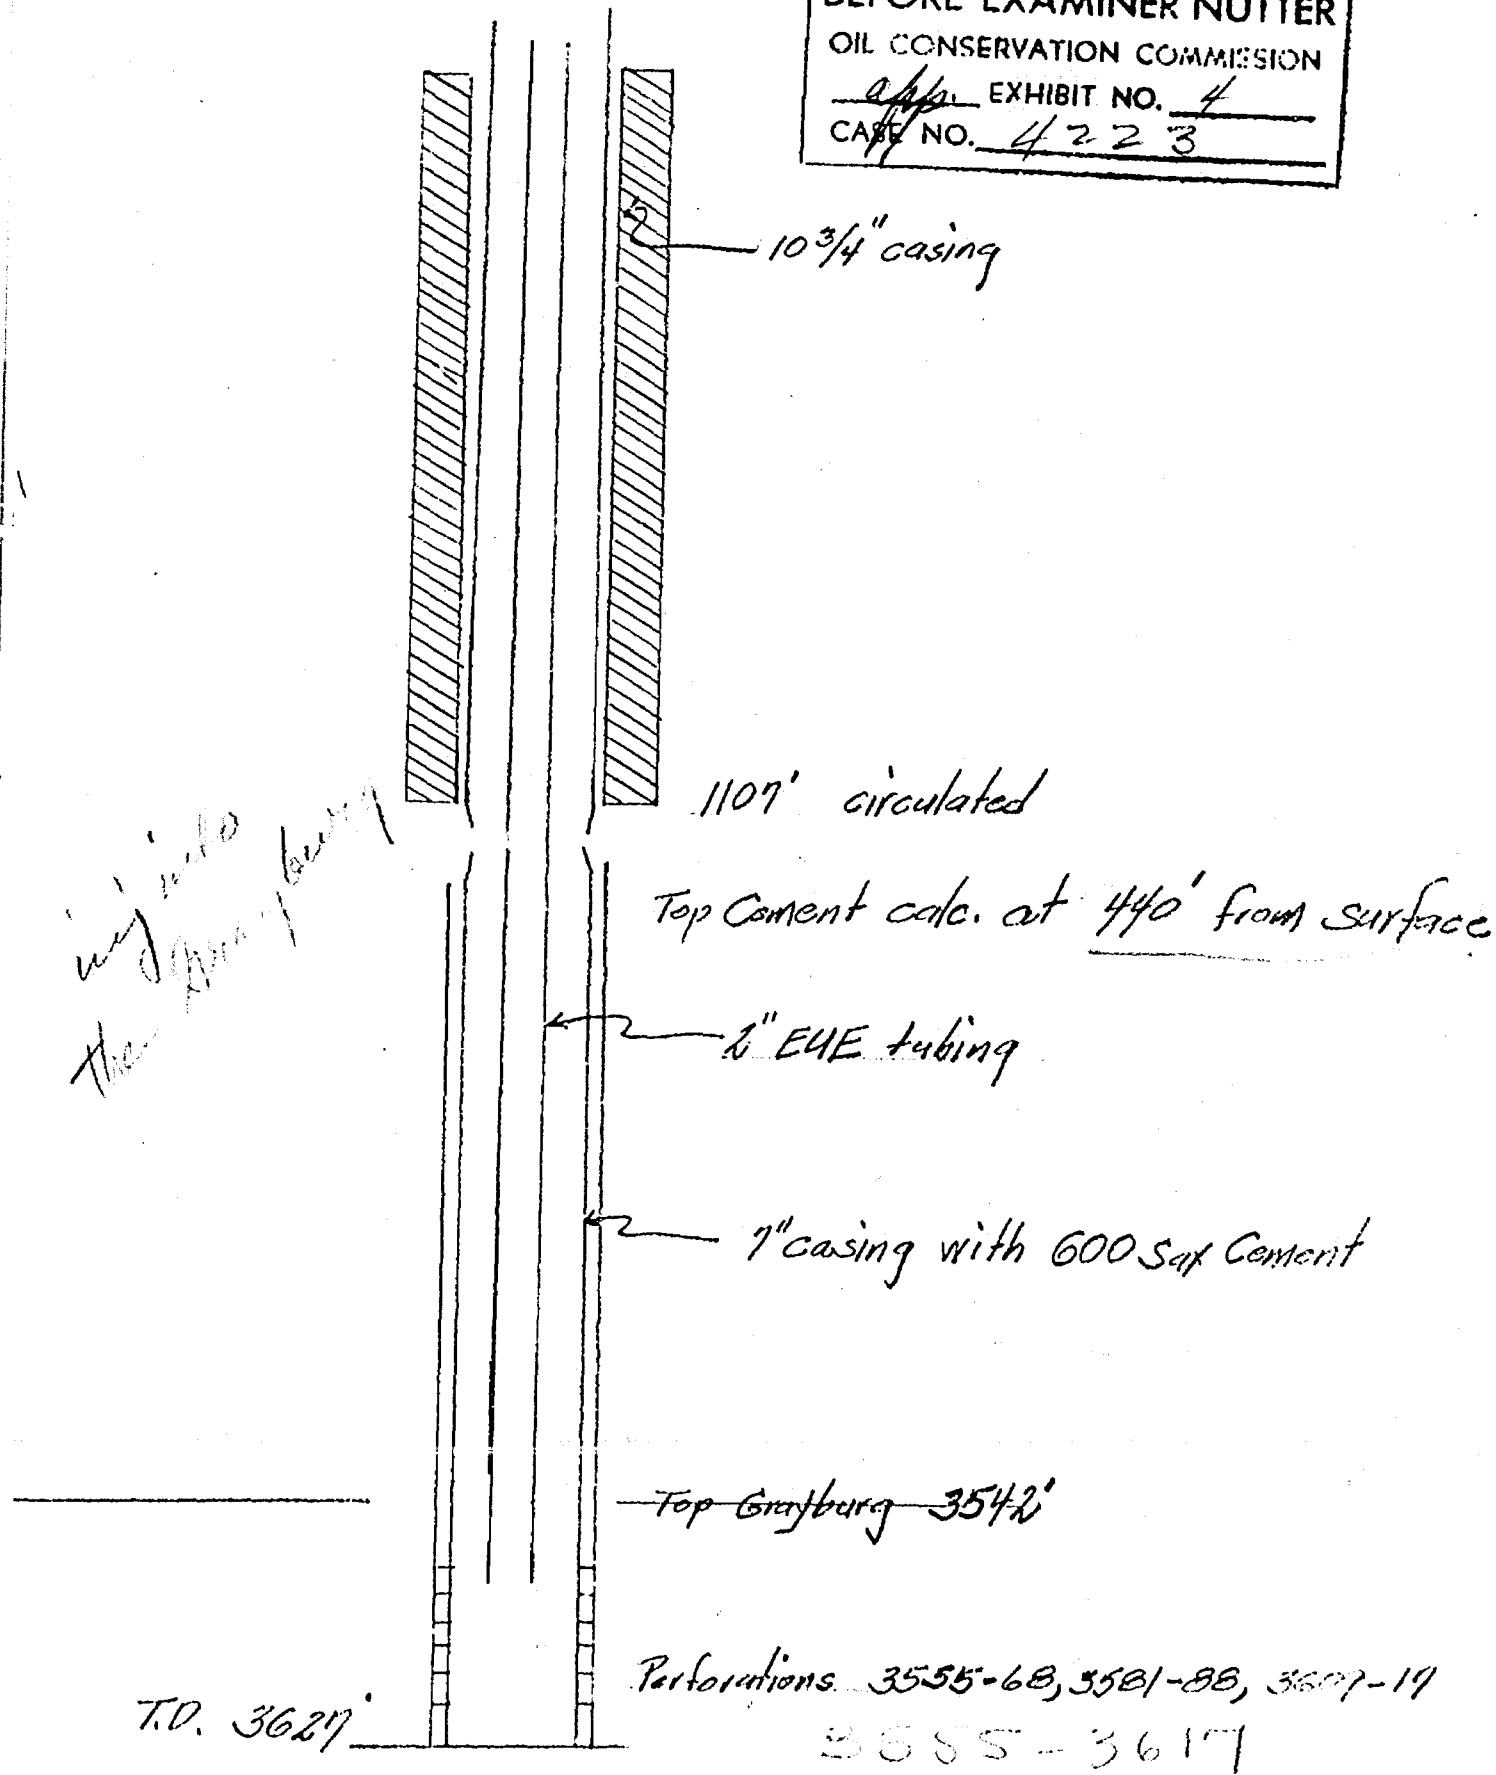 BEFORE EXAMINER NUTTER
OIL CONSERVATION COMMISSION
app. EXHIBIT NO. 4
CASE NO. 4223
10 3/4" casing
1107' circulated
inj into
the Grayburg
Top Cement calc. at 440' from surface
2" EUE tubing
7" casing with 600 Sax Cement
Top Grayburg 3542'
Perforations 3555-68, 3581-88, 3607-17
T.D. 3627'
3555-3617